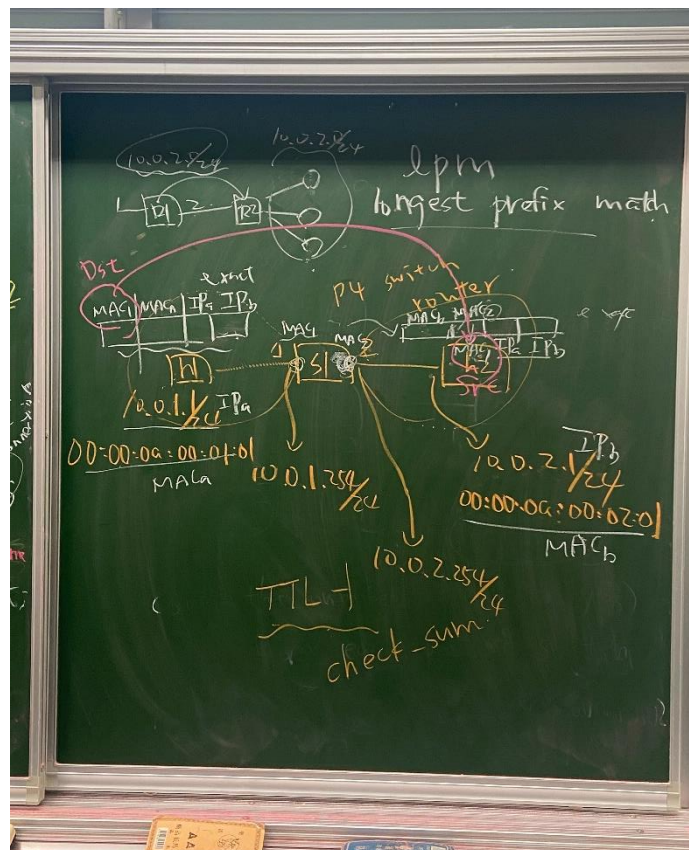 10.0.2.0/24
10.0.2.0/24
1 R1 2 R2
lpm
longest prefix match
Dst
exact
P4 switch
router
MAC1 MACa IPa IPb
MACb MAC2
MAC1 MAC2
IPa IPb
h1
1 S1 2
h2
src
10.0.1.1/24 IPa
00:00:0a:00:01:01
MACa
10.0.1.254/24
IPb
10.0.2.1/24
00:00:0a:00:02:01
MACb
10.0.2.254/24
TTL-1
check_sum